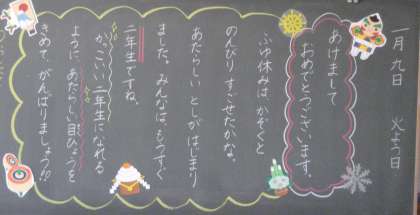 一月九日 火よう日
あけまして
おめでとうございます。
ふゆ休みは、かぞくと
のんびり すごせたかな。
あたらしい としが はじまり
ました。みんなは、もうすぐ
二年生ですね。
かっこいい二年生になれる
ように、あたらしい目ひょうを
きめて、がんばりましょう!!